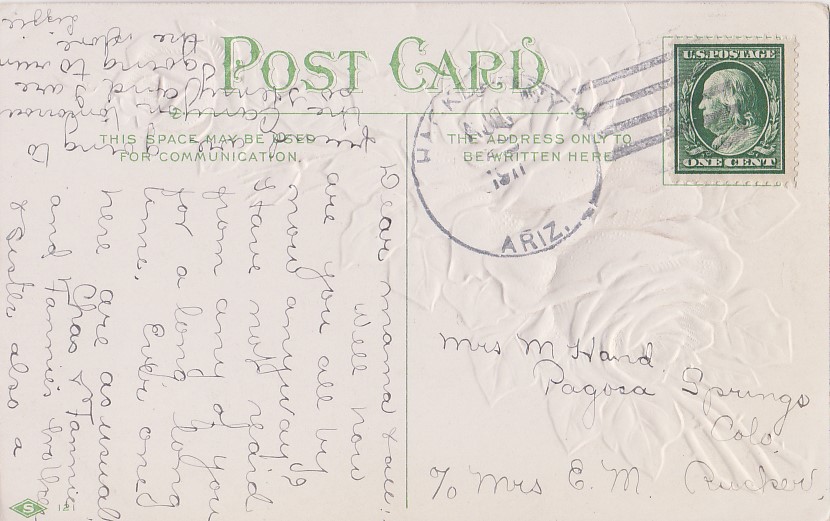 POST CARD
THIS SPACE MAY BE USED
FOR COMMUNICATION.
THE ADDRESS ONLY TO
BE WRITTEN HERE
U.S. POSTAGE
ONE CENT
HACKBERRY
1911
ARIZ.
Dear mama & all:
Well how
are you all by
now anyway?
Have not heard
from any of you
for a long long
time. Every one
here are as usual
Chas & Fannie
and Fannie's
& sister also a
going to
the Canyon tomorrow
and are
going to run
the store.
Lizzie
Mrs M Hand.
Pagosa Springs
Colo.
c/o Mrs E. M. Rucker.
S 121